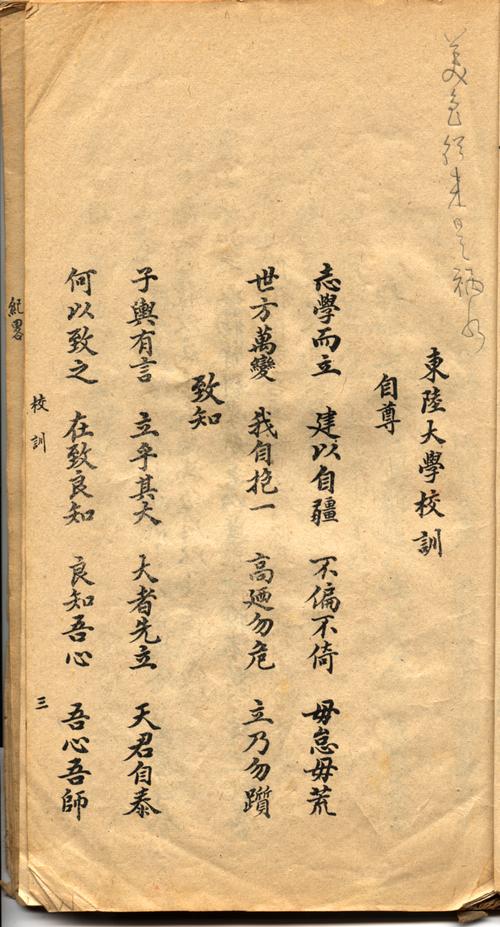 美色 来是祸水
東陸大學校訓
自尊
志學而立 建以自疆 不偏不倚 毋怠毋荒
世方萬變 我自抱一 高廼勿危 立乃勿躓
致知
子輿有言 立乎其大 大者先立 天君自泰
何以致之 在致良知 良知吾心 吾心吾師
紀畧
校訓
三